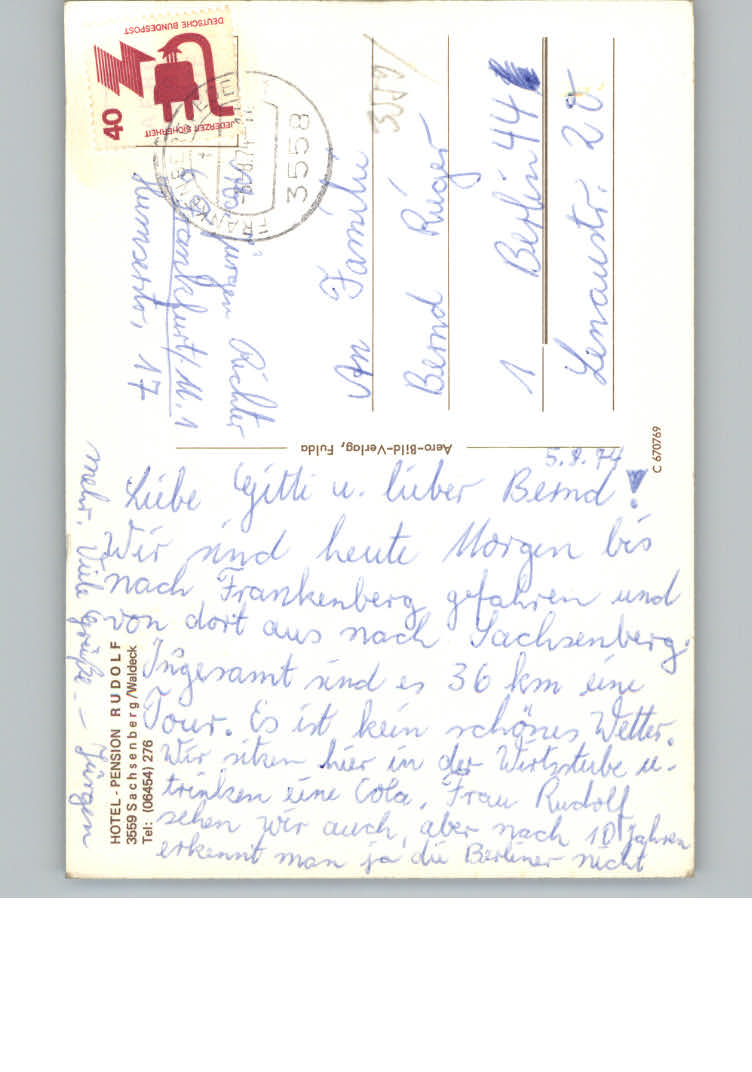 HOTEL-PENSION RUDOLF
3559 Sachsenberg/Waldeck
Tel: (06454) 276
5.8.74
Liebe Gitti u. lieber Bernd!
Wir sind heute Morgen bis
nach Frankenberg gefahren und
von dort aus nach Sachsenberg.
Ingesamt sind es 36 km eine
Tour. Es ist kein schönes Wetter.
Wir sitzen hier in der Wirtsstube u.
trinken eine Cola. Frau Rudolf
sehen wir auch, aber nach 10 Jahren
erkennt man ja die Berliner nicht
mehr. Viele Grüße - Jürgen
Aero-Bild-Verlag, Fulda
C 670769
DEUTSCHE BUNDESPOST
JEDERZEIT SICHERHEIT
40
3558
Jürgen Richter
6 Frankfurt/M. 1
17
3559
An Familie
Bernd Rieger
1 Berlin 44
Lenaustr. 20